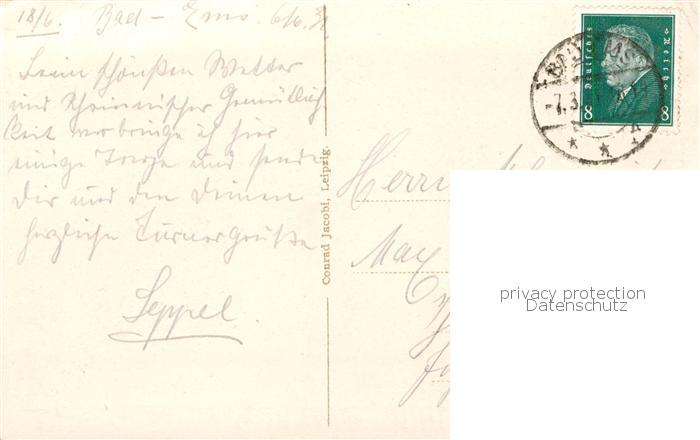 18/6. Bad - Ems.
Beim schönsten Wetter
und Rheinischer Gemütlich
keit verbringe ich hier
einige Tage und sende
Dir und den Deinen
herzliche Turnergrüße
Seppel.
Conrad Jacobi, Leipzig.
Deutsches Reich
8 8
BAD EMS
-7.3
Herrn
Max
privacy protection
Datenschutz